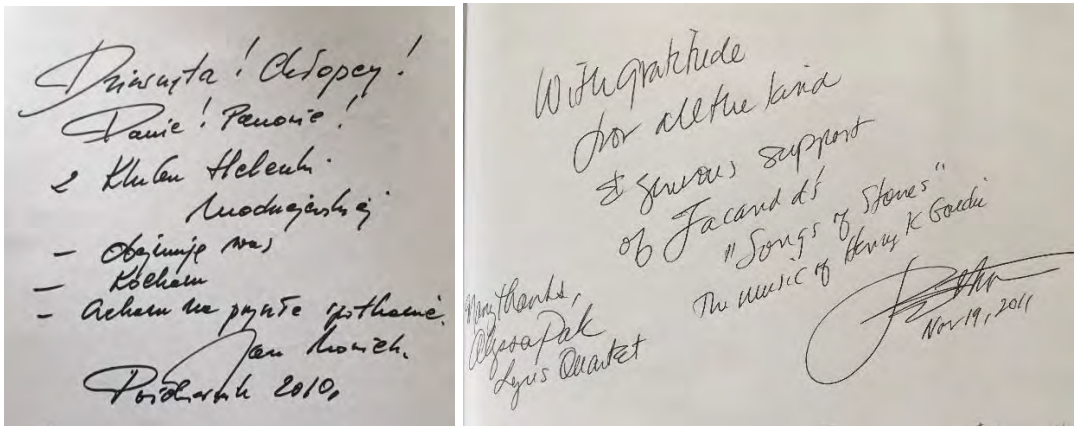 Dziewczęta! Chłopcy!
Panie! Panowie!
z Klubu Heleny
Modrzejewskiej
– obejmuję was
– Kocham
– Czekam na przyszłe spotkanie.
Jan
Październik 2010,
With gratitude
for all the kind
& generous support
of Jacaranda's
"Songs of Stones"
The music of Henry K Gorecki
Nov 19, 2011
Many thanks,
Alyssa Park
Lyris Quartet